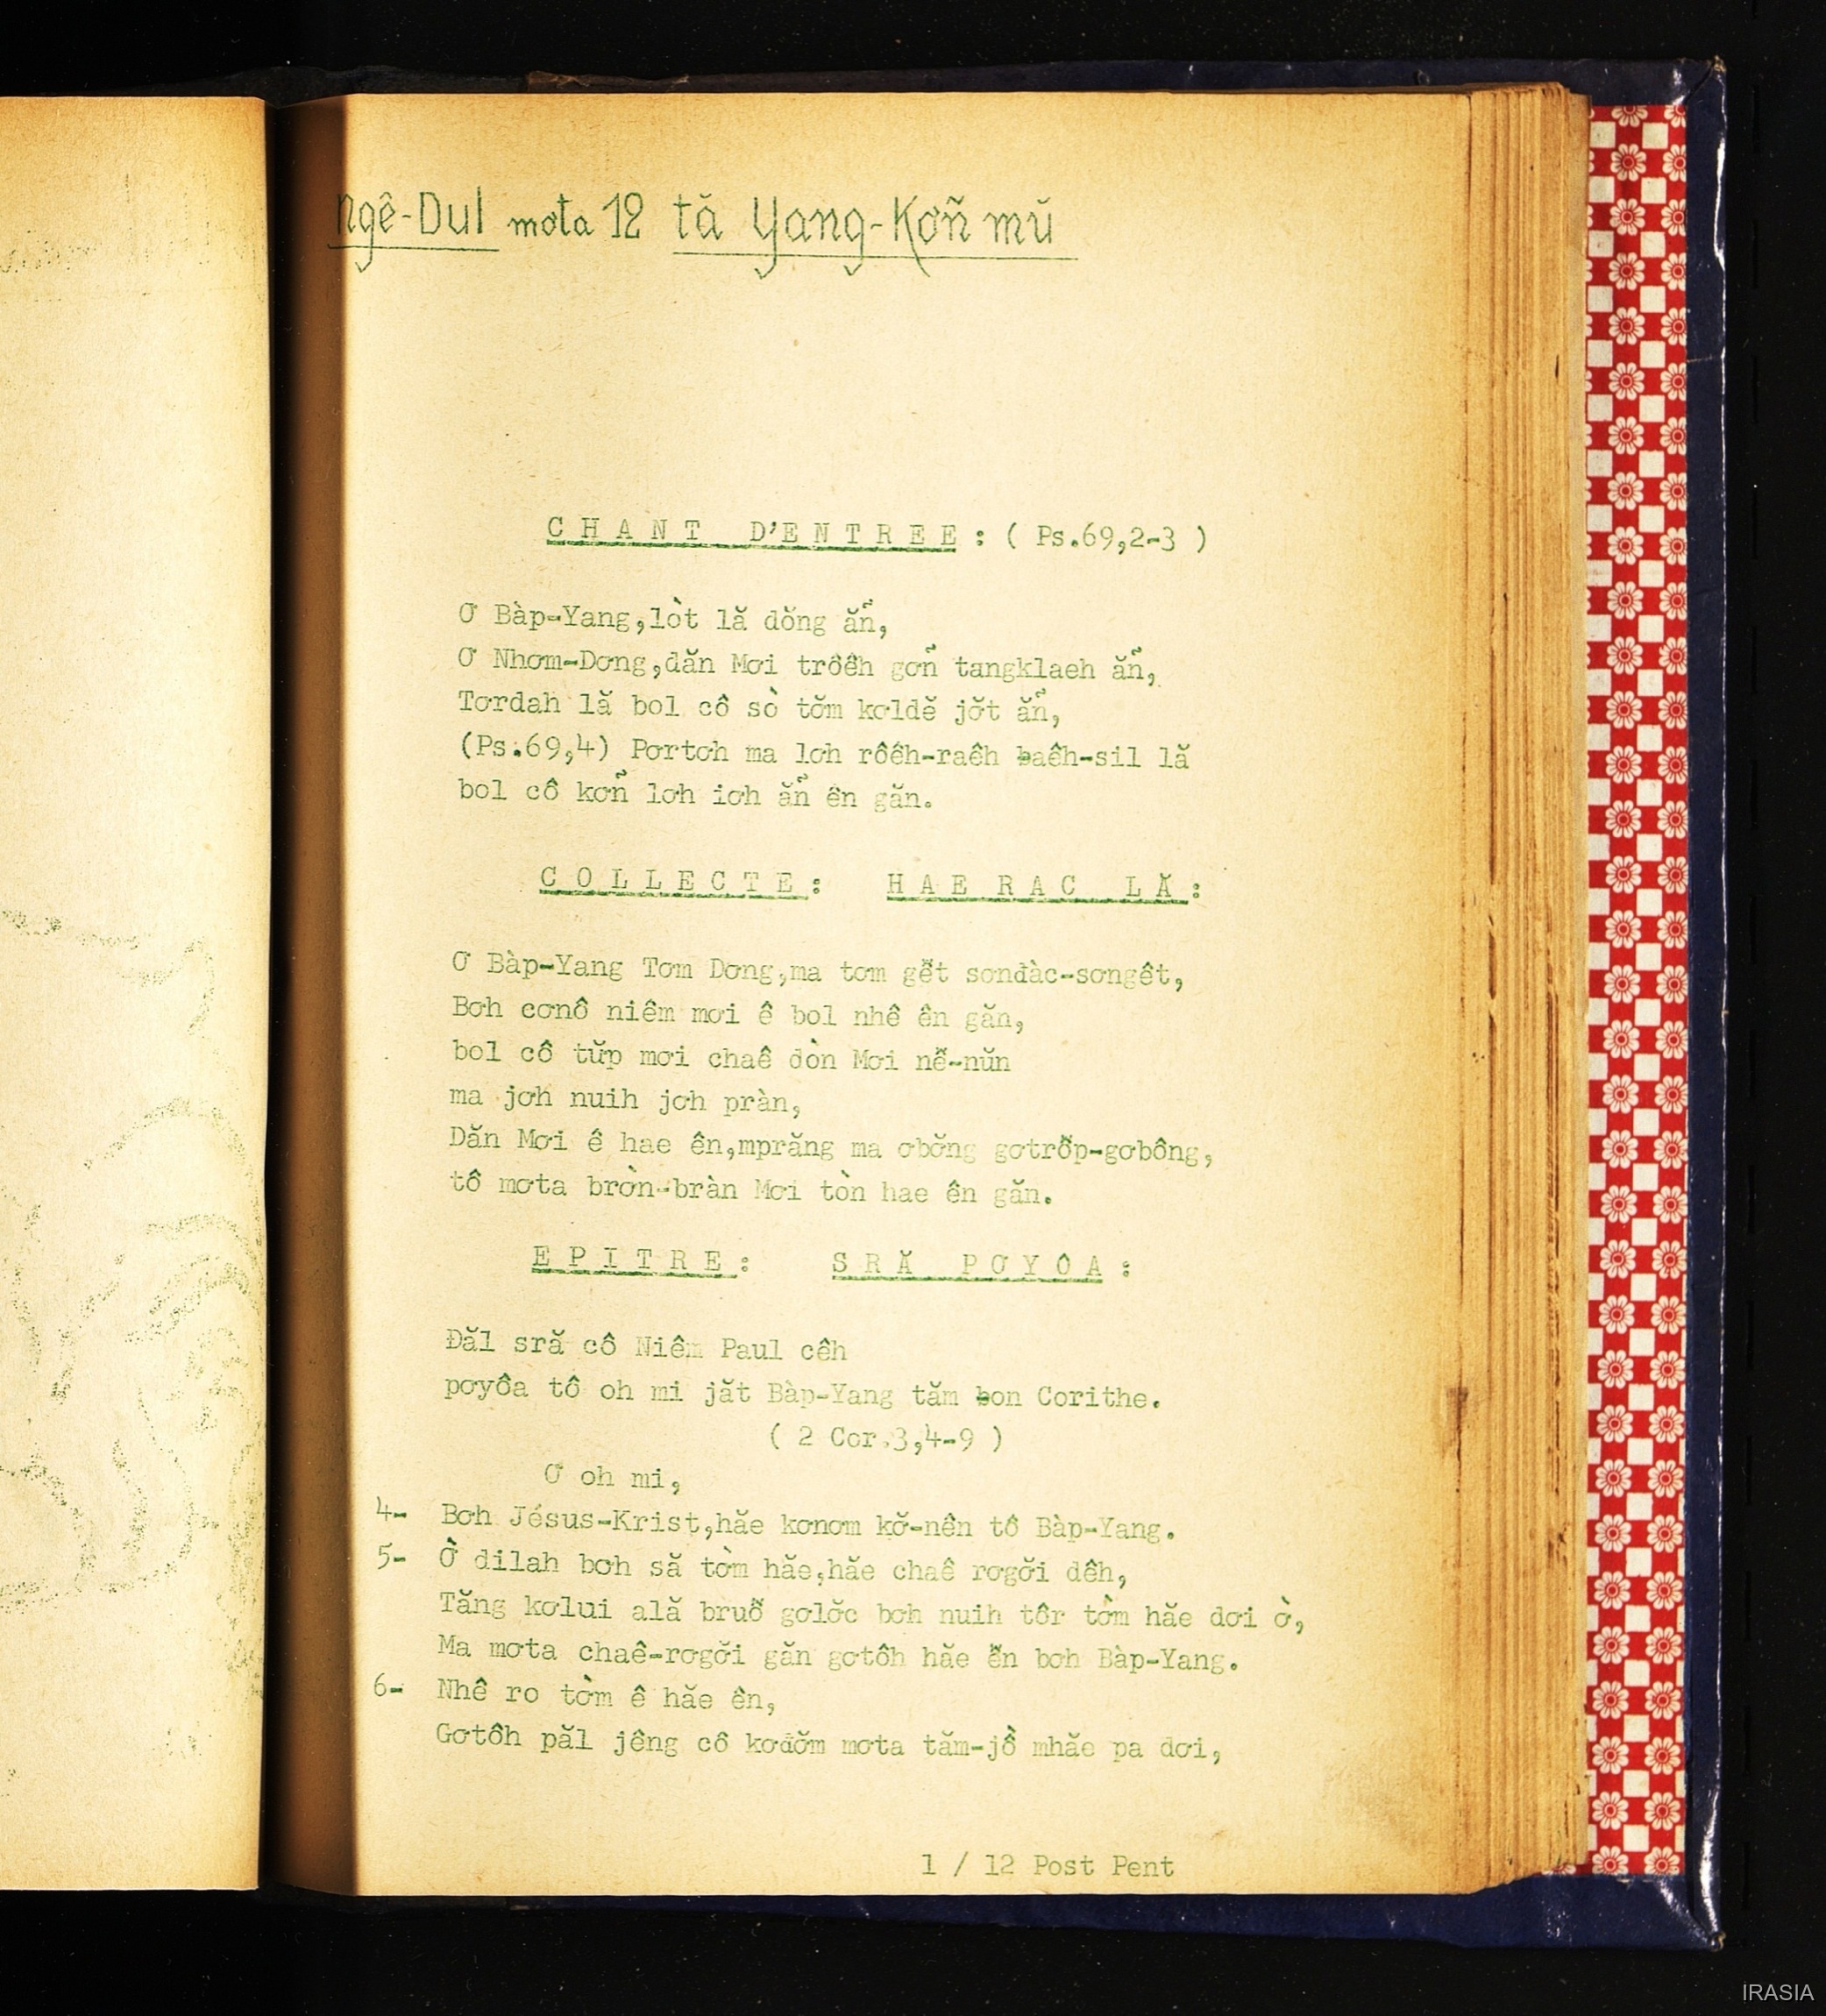 Ngê-Dul mơta 12 tă Yang-Kơñ mŭ
CHANT D'ENTREE : ( Ps.69,2-3 )
Ơ Bàp-Yang,lòt lă dŏng ăñ̉,
Ơ Nhơm-Dơng,dăn Mơi trôêh gơñ̉ tangklaeh ăñ̉,
Tơrdah lă bol cô sò tŏm kơldĕ jŏt ăñ̉,
(Ps.69,4) Pơrtơh ma lơh rôêh-raêh ƀaêh-sil lă
bol cô kơñ̉ lơh iơh ăñ̉ ên găn.
COLLECTE: HAE RAC LĂ:
Ơ Bàp-Yang Tơm Dơng,ma tơm gê̆t sơnđàc-sơngêt,
Bơh cơnô niêm mơi ê bol nhê ên găn,
bol cô tŭp mơi chaê đòn Mơi nê̆-nŭn
ma jơh nuih jơh pràn,
Dăn Mơi ê hae ên,mprăng ma ơbơ̆ng gơtrô̆p-gơbông,
tô mơta brờn-bràn Mơi tòn hae ên găn.
EPITRE: SRĂ PƠYÔA:
Đăl sră cô Niêm Paul cêh
pơyôa tô oh mi jăt Bàp-Yang tăm ƀon Corithe.
( 2 Cor.3,4-9 )
Ơ oh mi,
4- Bơh Jésus-Krist,hăe kơnơm kơ̆-nên tô Bàp-Yang.
5- Ờ dilah bơh să tờm hăe,hăe chaê rơgơ̆i dêh,
Tăng kơlui ală bruô̆ gơlơ̆c bơh nuih tôr tờm hăe dơi ờ,
Ma mơta chaê-rơgơ̆i găn gơtôh hăe ê̆n bơh Bàp-Yang.
6- Nhê ro tờm ê hăe ên,
Gơtôh păl jêng cô kơđơ̆m mơta tăm-jồ mhăe pa dơi,
1 / 12 Post Pent
IRASIA